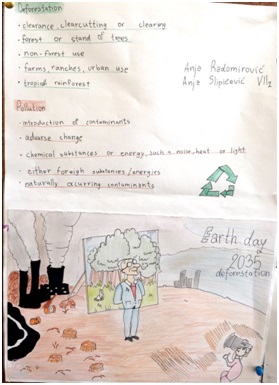 Deforestation
- clearance, clearcutting or clearing
- forest or stand of trees
- non-forest use
- farms, ranches, urban use
- tropical rainforest
Anja Radomirović
Anja Slipčević VII2
Pollution
- introduction of contaminants
- adverse change
- chemical substances or energy, such a noise, heat or light
- either foreigh substanies/energies
- naturally ocurring contaminants
Earth day
2035
deforestation